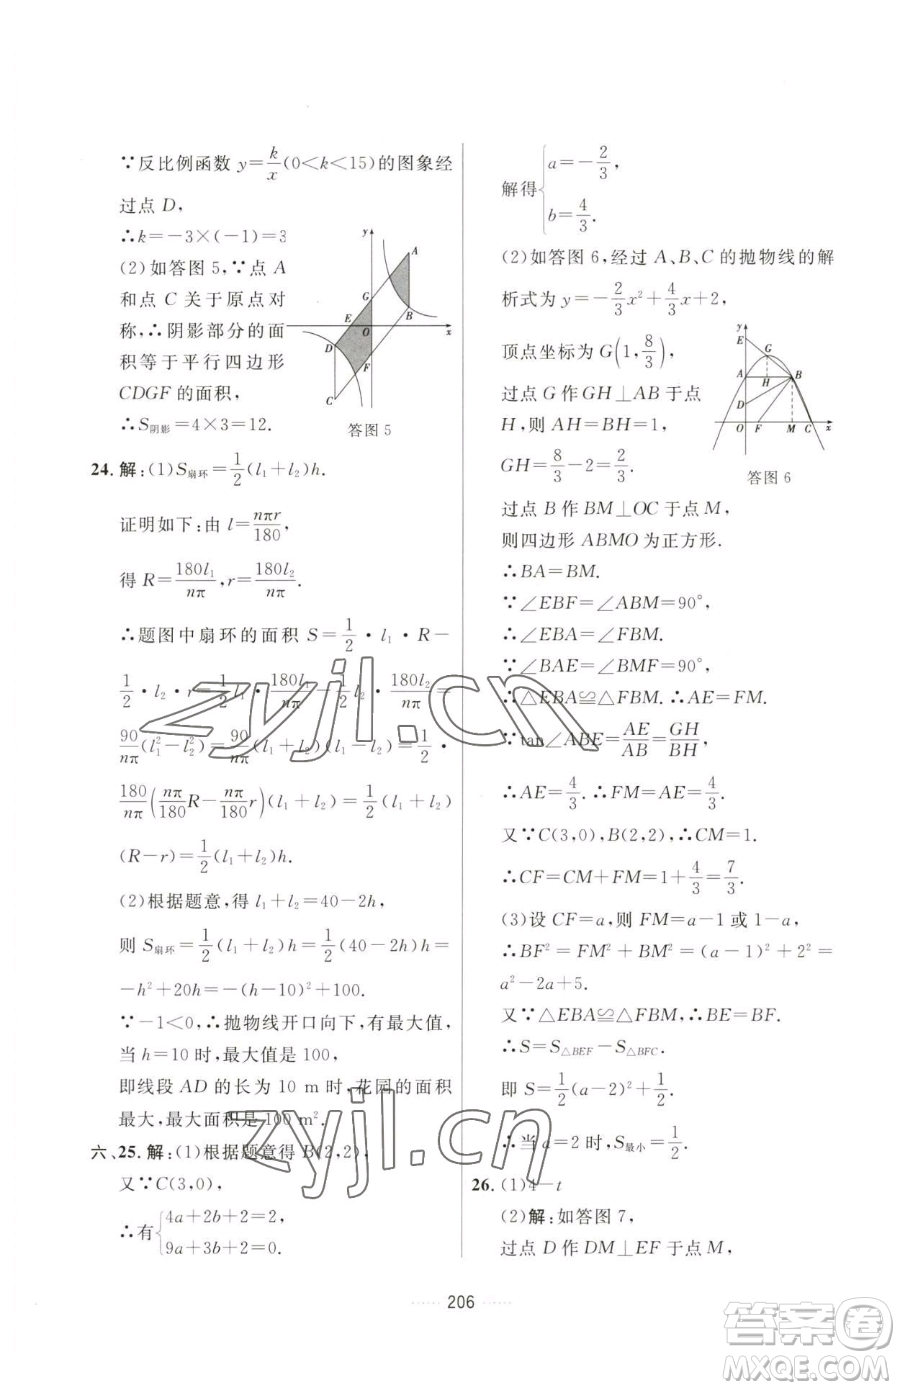 ∵反比例函数 y=k/x(0<k<15)的图象经
过点 D,
∴k=-3×(-1)=3
(2)如答图 5,∵点 A
和点 C 关于原点对
称,∴阴影部分的面
积等于平行四边形
CDGF 的面积,
∴S阴影=4×3=12.
y
A
G
E
O
B
x
D
F
C
答图 5
24. 解:(1)S扇环=1/2(l₁+l₂)h.
证明如下:由 l=nπr/180,
得 R=180l₁/nπ,r=180l₂/nπ.
∴题图中扇环的面积 S=1/2·l₁·R-
1/2·l₂·r=1/2·l₁·180l₁/nπ-1/2·l₂·180l₂/nπ=
90/nπ(l₁²-l₂²)=90/nπ(l₁+l₂)(l₁-l₂)=1/2·
180/nπ(nπ/180 R-nπ/180 r)(l₁+l₂)=1/2(l₁+l₂)
(R-r)=1/2(l₁+l₂)h.
(2)根据题意,得 l₁+l₂=40-2h,
则 S扇环=1/2(l₁+l₂)h=1/2(40-2h)h=
-h²+20h=-(h-10)²+100.
∵-1<0,∴抛物线开口向下,有最大值,
当 h=10 时,最大值是 100,
即线段 AD 的长为 10 m时,花园的面积
最大,最大面积是 100 m².
六、25. 解:(1)根据题意得 B(2,2),
又∵C(3,0),
∴有{4a+2b+2=2,
9a+3b+2=0.
解得{a=-2/3,
b=4/3.
(2)如答图 6,经过 A、B、C 的抛物线的解
析式为 y=-2/3x²+4/3x+2,
顶点坐标为 G(1,8/3),
过点 G 作 GH⊥AB 于点
H,则 AH=BH=1,
GH=8/3-2=2/3.
y
E
G
A
H
B
D
O
F
M
C
x
答图 6
过点 B 作 BM⊥OC 于点 M,
则四边形 ABMO 为正方形.
∴BA=BM.
∵∠EBF=∠ABM=90°,
∴∠EBA=∠FBM.
∵∠BAE=∠BMF=90°,
∴△EBA≌△FBM.∴AE=FM.
∵tan∠ABE=AE/AB=GH/BH,
∴AE=4/3.∴FM=AE=4/3.
又∵C(3,0),B(2,2),∴CM=1.
∴CF=CM+FM=1+4/3=7/3.
(3)设 CF=a,则 FM=a-1 或 1-a,
∴BF²=FM²+BM²=(a-1)²+2²=
a²-2a+5.
又∵△EBA≌△FBM,∴BE=BF.
∴S=S△BEF-S△BFC.
即 S=1/2(a-2)²+1/2.
∴当 a=2 时,S最小=1/2.
26. (1)4-t
(2)解:如答图 7,
过点 D 作 DM⊥EF 于点 M,
206
zyjl.cn
zyjl.cn
答案圈
MXQE.COM